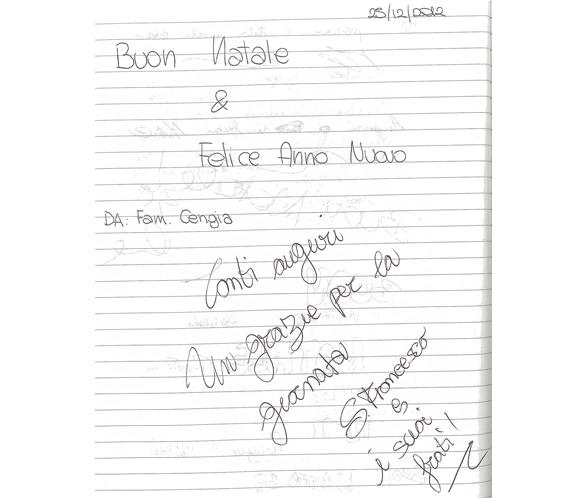 25/12/2012
Buon Natale
&
Felice Anno Nuovo
DA: Fam. Cengia
Tanti auguri
Un grazie per la
giornata
S. Francesco
e
i suoi
frati!